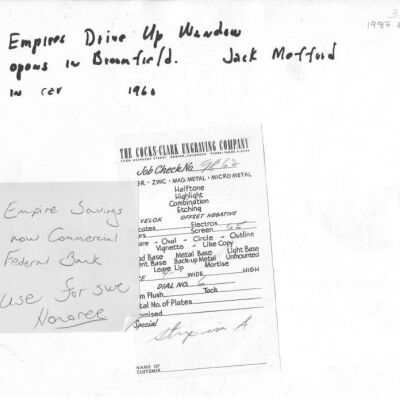 Empires Drive Up Window
opens in Broomfield. Jack Mefford
in car 1960
3
1987.
THE COCKS-CLARK ENGRAVING COMPANY
Job Check No.
ER · ZINC · MAG. METAL · MICROMETAL
Halftone
Highlight
Combination
Etching
VELOX OFFSET NEGATIVE
cates Electros
rs Screen 65
are - Oval - Circle - Outline
Vignette - Like Copy
d Base Metal Base Light Base
ent Base Back-up Metal Unmounted
Leave Lip Mortise
E 7 WIDE HIGH
DIAL NO. 6
m Flush Tack
tal No. of Plates
omised
Special
Strip in A
NAME OF
CUSTOMER
Empire Savings
now Commercial
Federal Bank
use for sure
Honoree